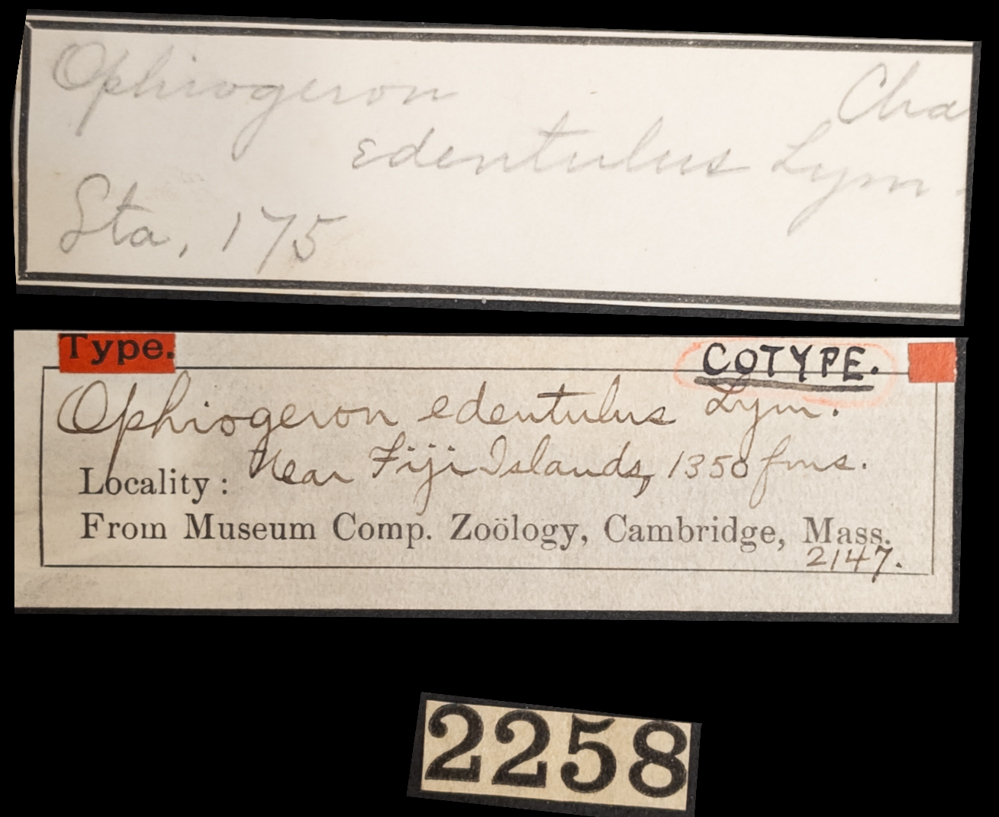 Ophiogeron Cha
edentulus Lym.
Sta, 175
Type. COTYPE.
Ophiogeron edentulus Lym.
Locality: Near Fiji Islands, 1350 fms.
From Museum Comp. Zoölogy, Cambridge, Mass.
2147.
2258